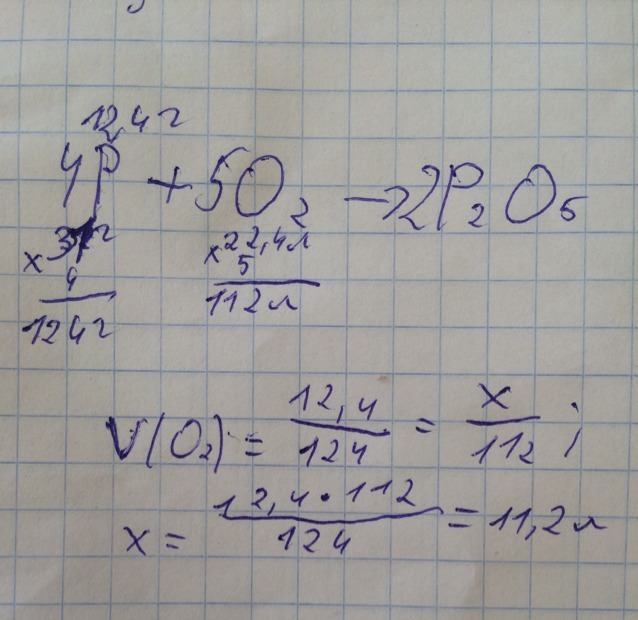 12,4 г
4P + 5O₂ → 2P₂O₅
x 31 г x 22,4 л
4 5
124 г 112 л
V(O₂) = 12,4/124 = x/112 ;
x = 12,4 · 112/124 = 11,2 л